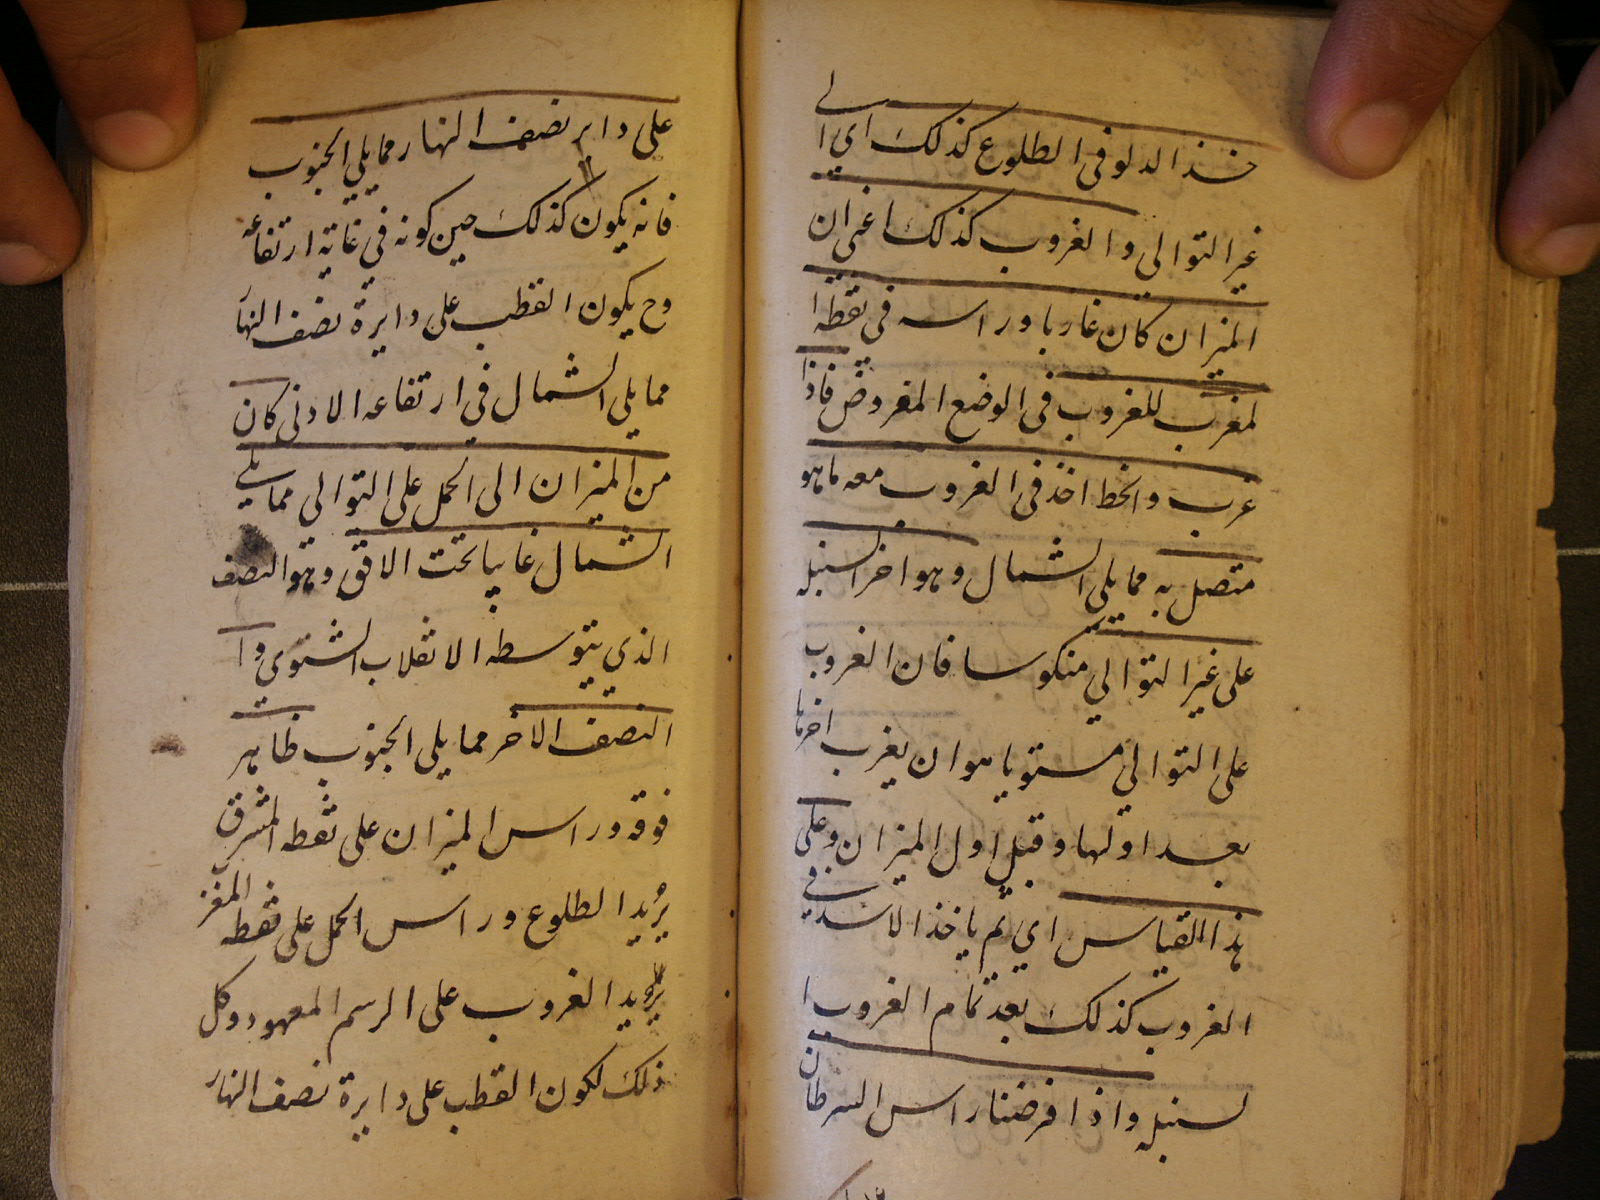 خذ الدلو فى الطلوع كذلك اى الى
غير التوالى والغروب كذلك اعنى ان
الميزان كان غاربا وراسه فى نقطة ا
لمغرب للغروب فى الوضع المفروض فاذا
غرب والخط اخذ فى الغروب معه ما هو
متصل به مما يلى الشمال وهو اخر السنبله
على غير التوالي منكوسا فان الغروب
على التوالي مستويا هو ان يغرب اخرها
بعد اولها وقبل اول الميزان وعلى
هذا القياس اي ثم ياخذ الاسد فى
الغروب كذلك بعد تمام الغروب ا
لسنبله واذا فرضنا راس السرطان
على داير نصف النهار مما يلي الجنوب
فانه يكون كذلك حين كونه في غاية ارتفاعه
وح يكون القطب على دايرة نصف النهار
مما يلى الشمال في ارتفاعه الادنى كان
من الميزان الى الحمل على التوالي مما يلي
الشمال غايبا تحت الافق وهو النصف
الذي يتوسطه الانقلاب الشتوي وا
النصف الاخر مما يلى الجنوب ظاهر
فوقه وراس الميزان على نقطه المشرق
يريد الطلوع وراس الحمل على نقطه المغر
يريد الغروب على الرسم المعهود وكل
ذلك لكون القطب على دايرة نصف النهار